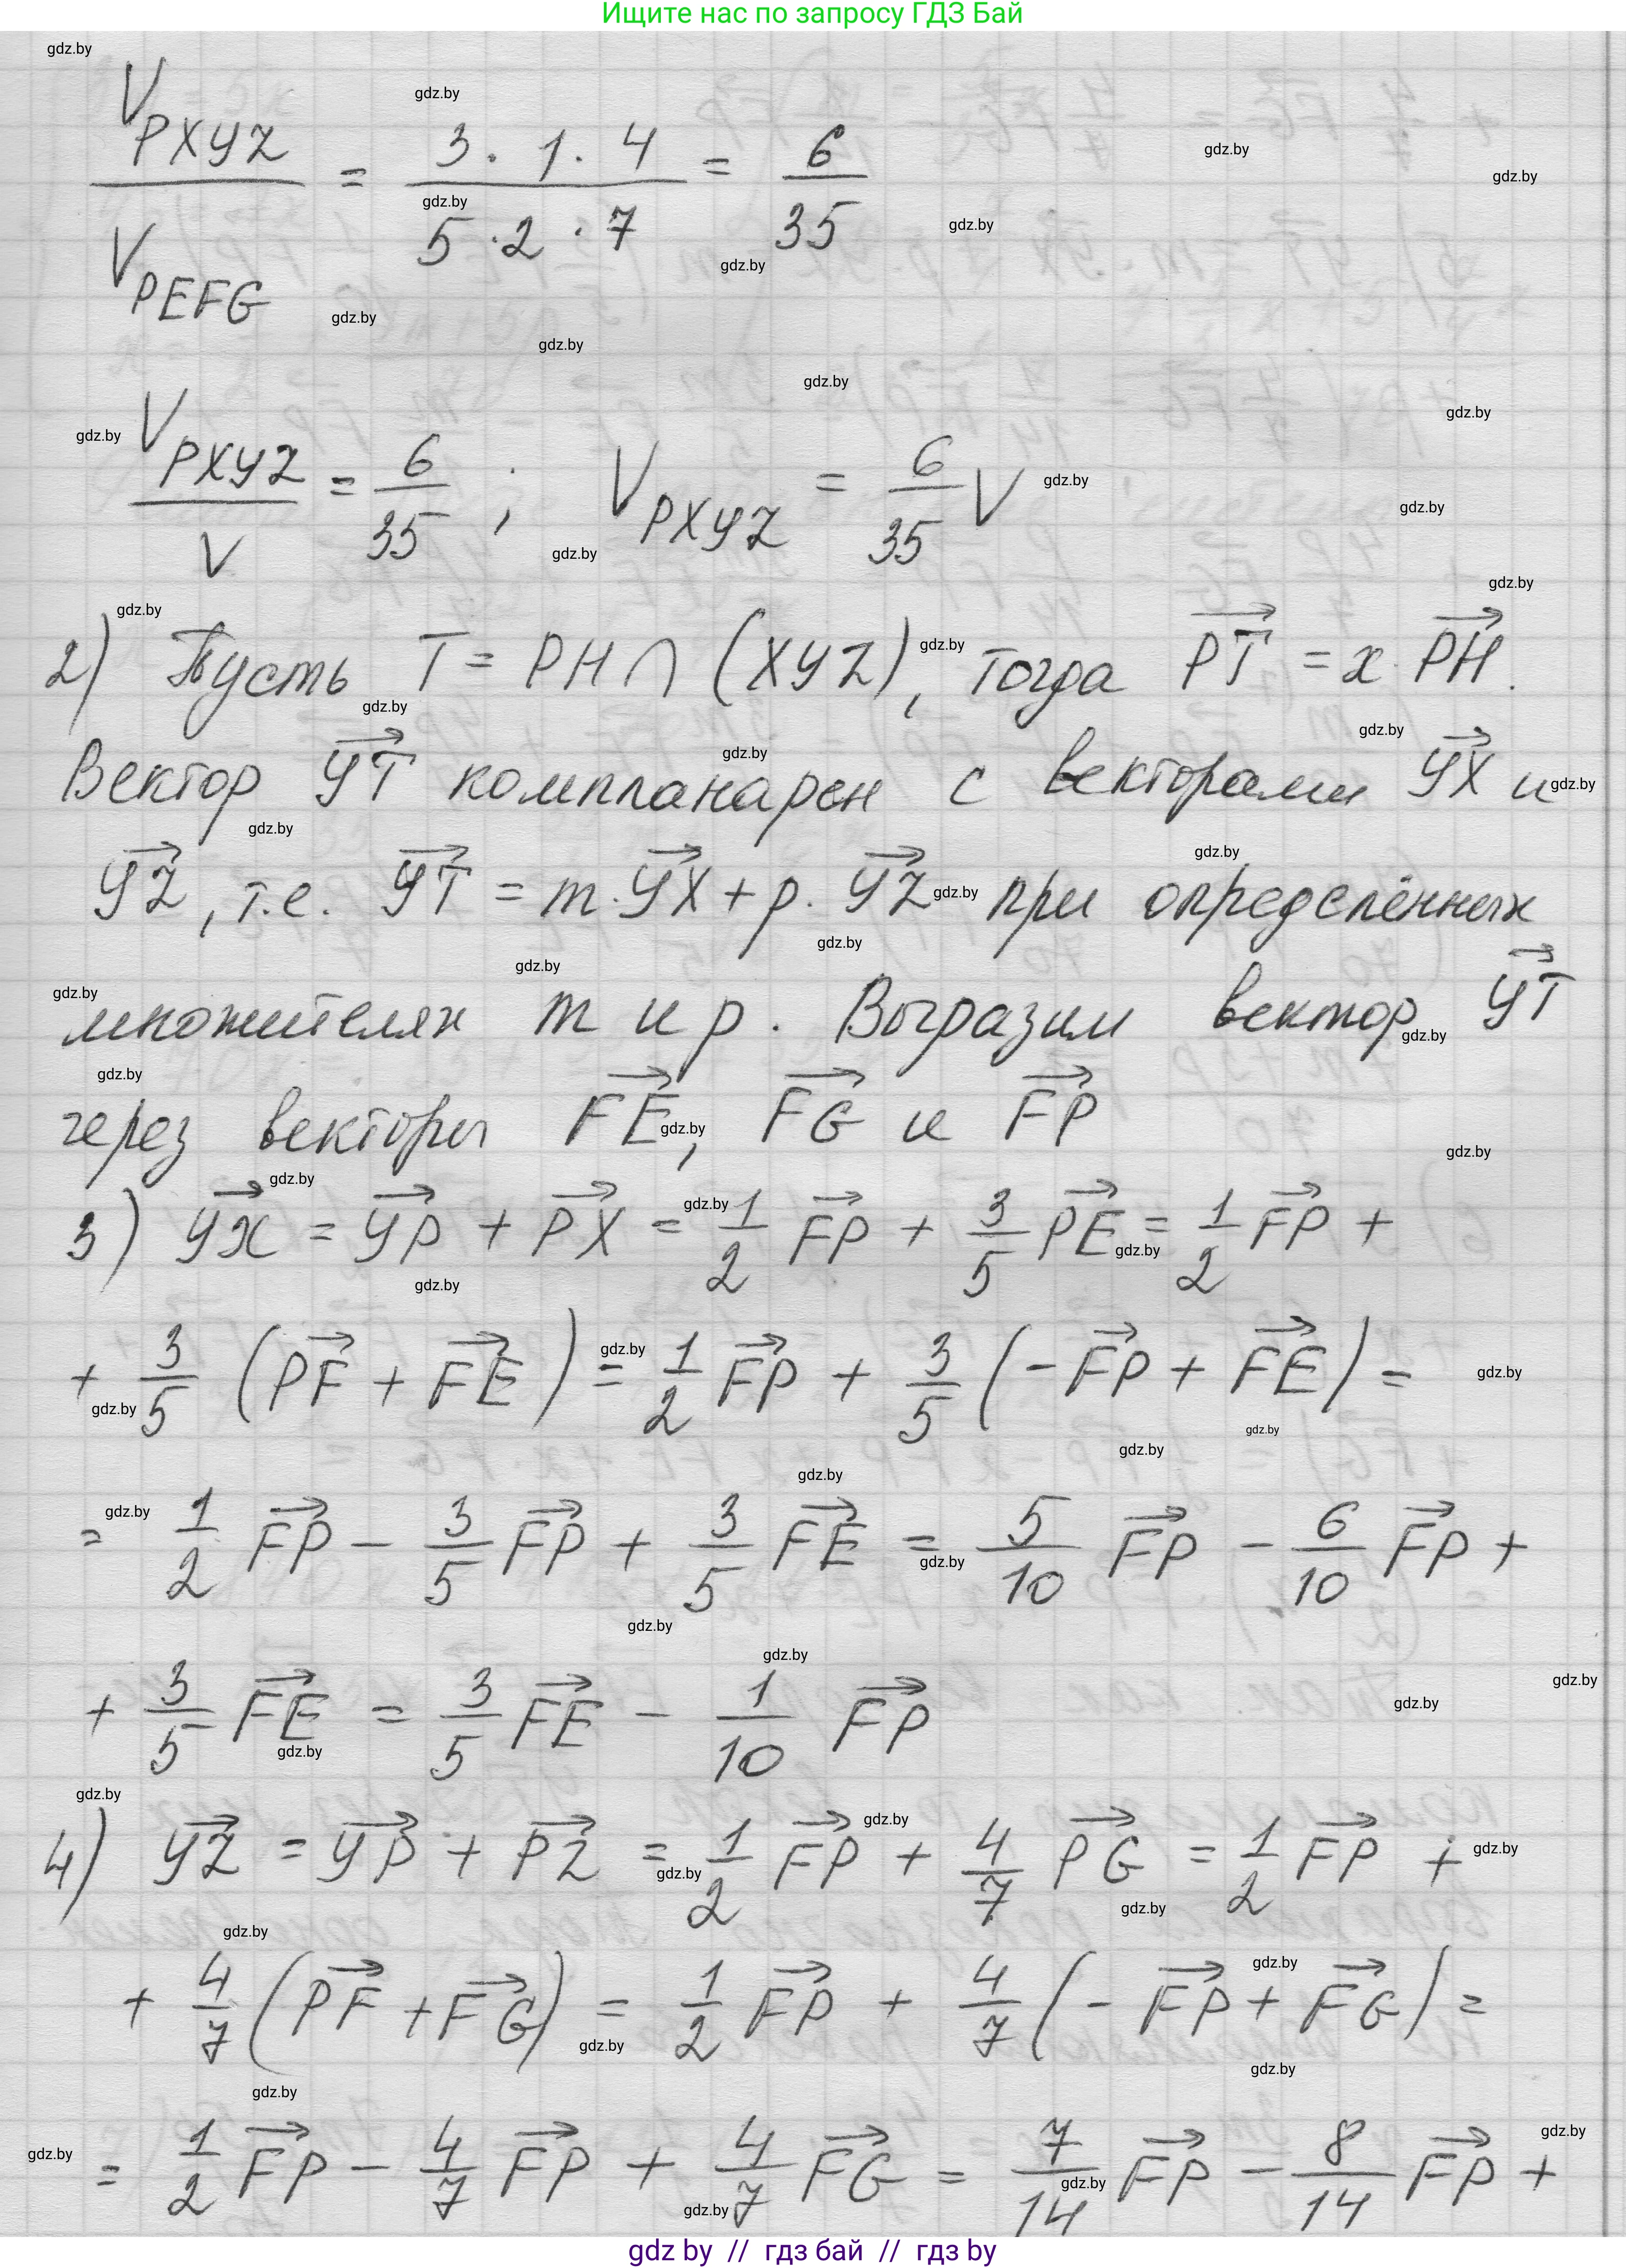 Ищите нас по запросу ГДЗ Бай
V_PXYZ / V_PEFG = (3 · 1 · 4) / (5 · 2 · 7) = 6/35
V_PXYZ / V = 6/35 ; V_PXYZ = 6/35 V
2) Пусть T = PH ∩ (XYZ), тогда →PT = x · →PH.
Вектор →YT компланарен с векторами →YX и
→YZ, т.е. →YT = m · →YX + p · →YZ при определённых
множителях m и p. Выразим вектор →YT
через векторы →FE, →FG и →FP
3) →YX = →YP + →PX = 1/2 →FP + 3/5 →PE = 1/2 →FP +
+ 3/5 (→PF + →FE) = 1/2 →FP + 3/5 (-→FP + →FE) =
= 1/2 →FP - 3/5 →FP + 3/5 →FE = 5/10 →FP - 6/10 →FP +
+ 3/5 →FE = 3/5 →FE - 1/10 →FP
4) →YZ = →YP + →PZ = 1/2 →FP + 4/7 →PG = 1/2 →FP +
+ 4/7 (→PF + →FG) = 1/2 →FP + 4/7 (-→FP + →FG) =
= 1/2 →FP - 4/7 →FP + 4/7 →FG = 7/14 →FP - 8/14 →FP +
gdz by // гдз бай // гдз by